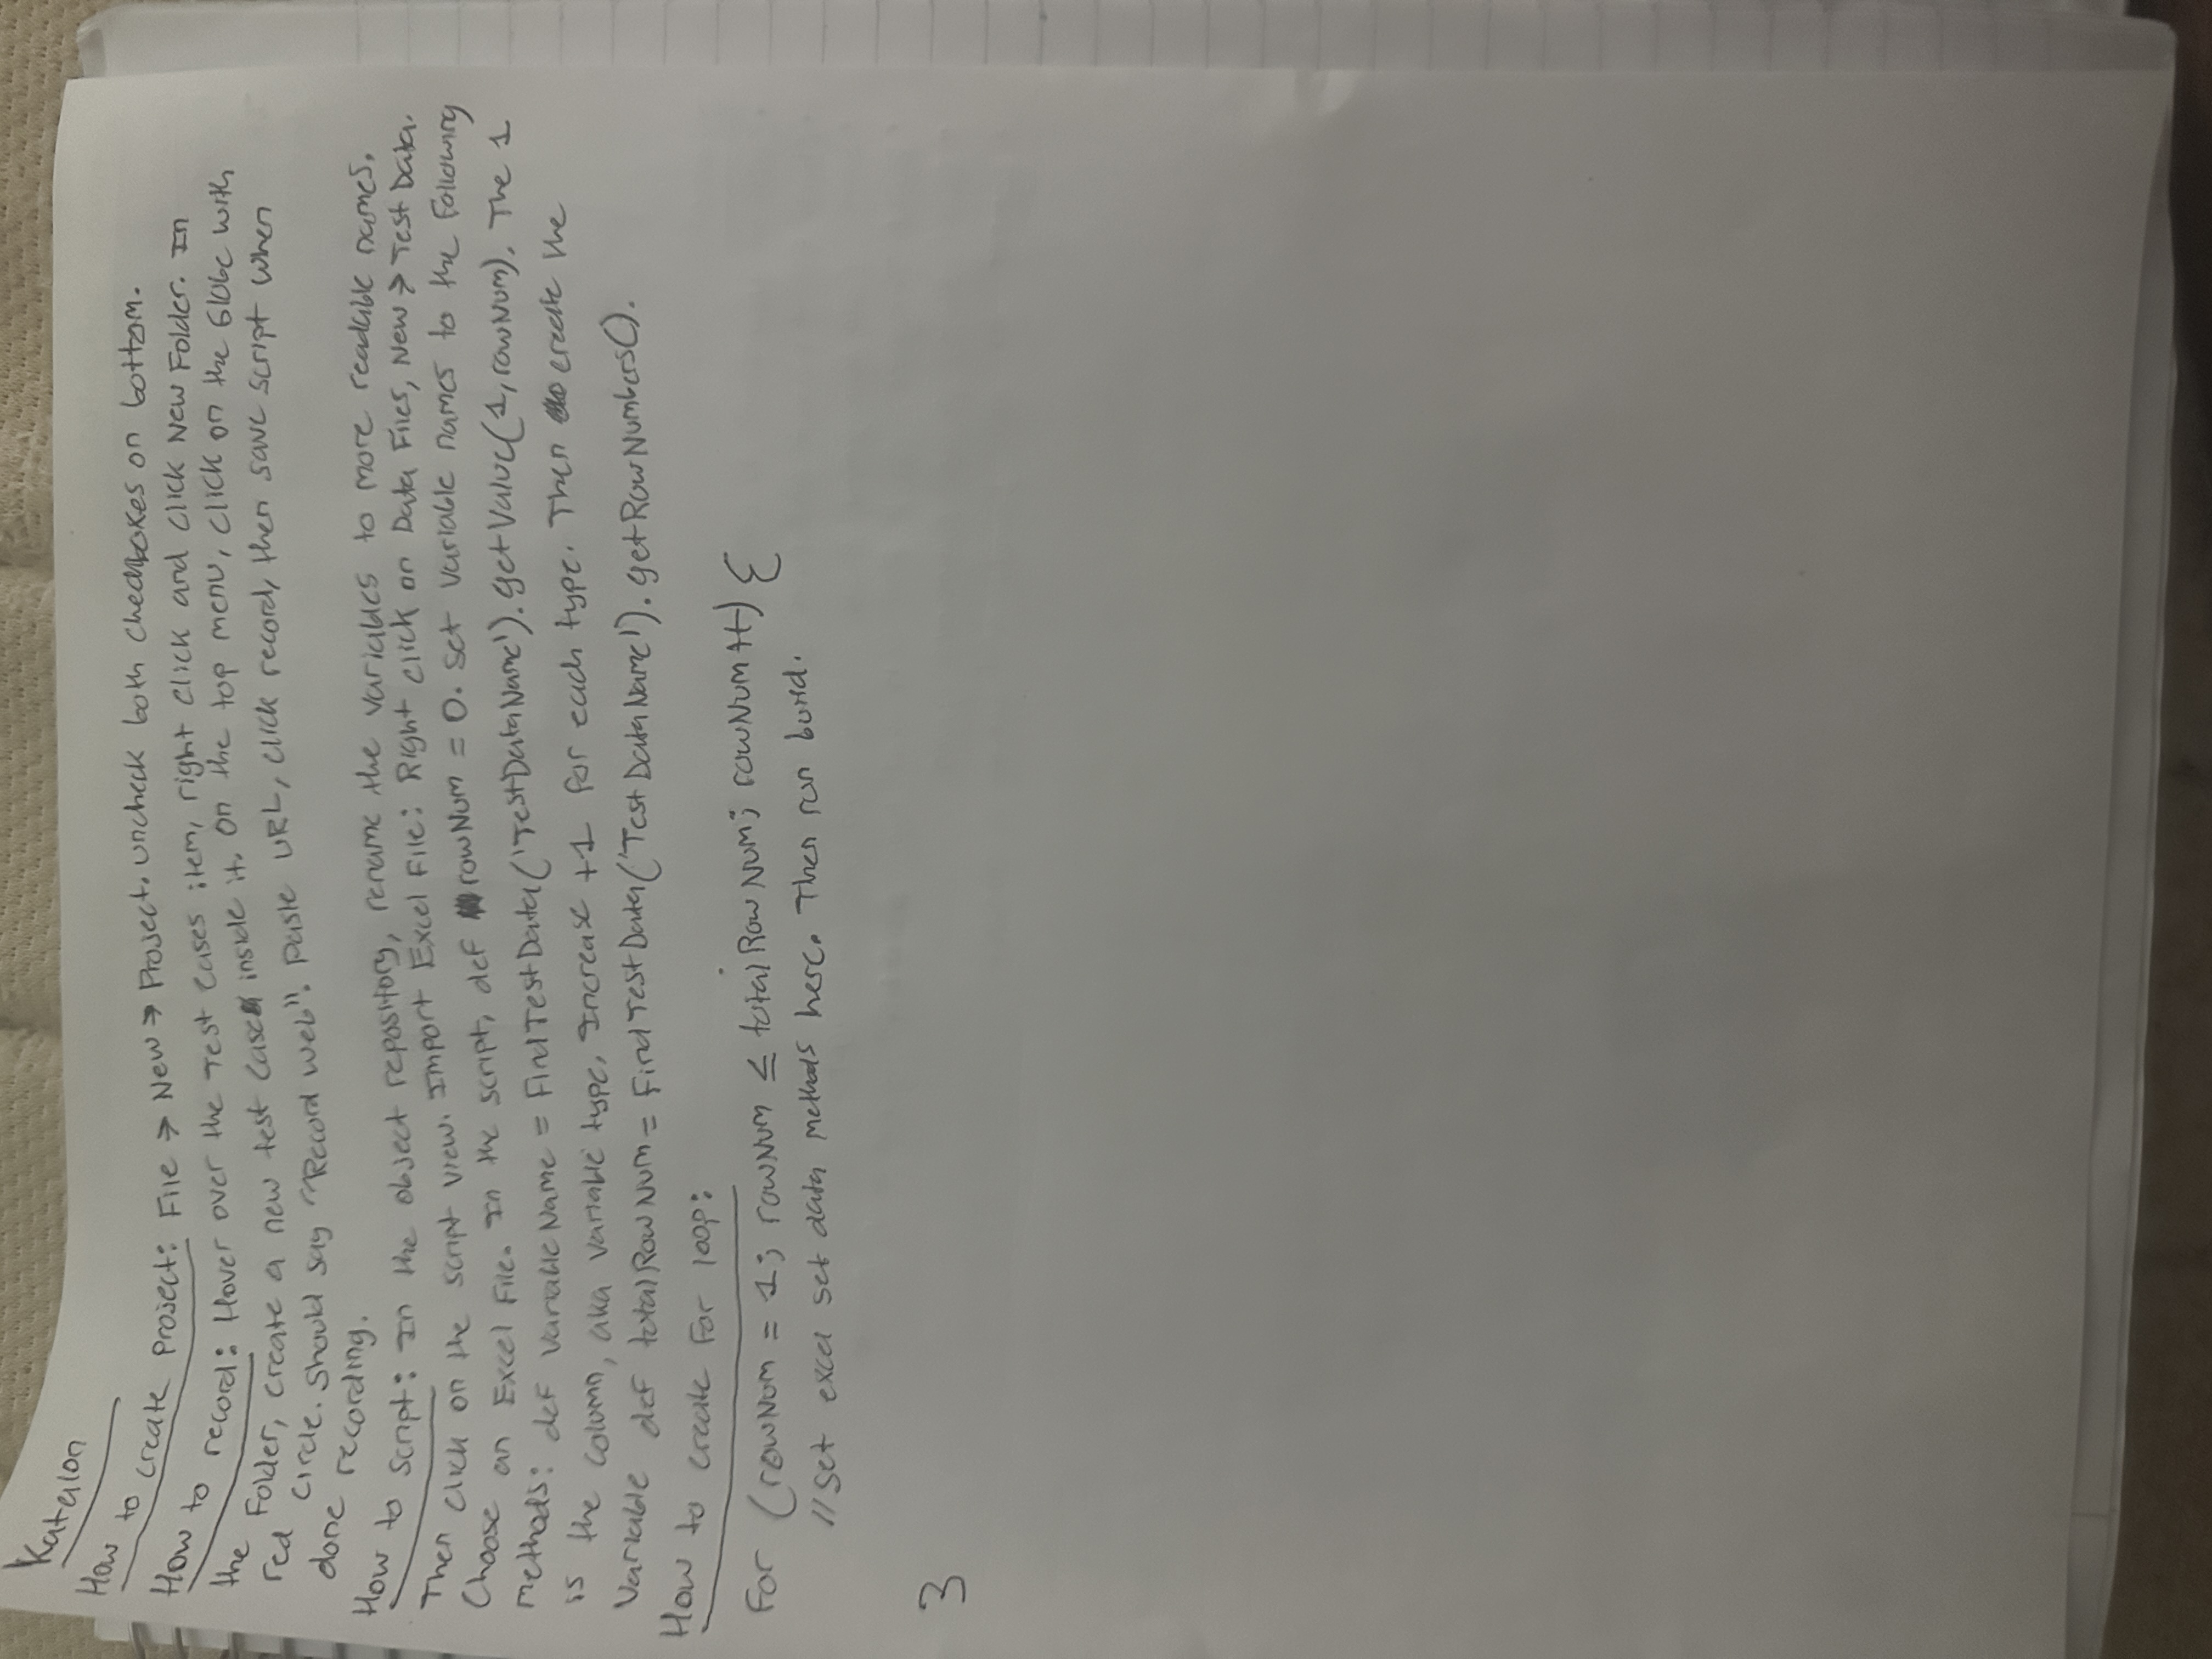 Katalon
How to create Project: File → New → Project. Uncheck both checkboxes on bottom.
How to record: Hover over the Test Cases item, right click and click New Folder. In
the Folder, create a new test case inside it. On the top menu, click on the Globe with
red circle. Should say "Record Web". Paste URL, click record, then save script when
done recording.
How to script: In the object repository, rename the variables to more readable names.
Then click on the script view. Import Excel File: Right click on Data Files, New → Test Data.
Choose an Excel File. In the script, def rowNum = 0. Set variable names to the following
methods: def variableName = FindTestData('TestDataName').getValue(1, rowNum). The 1
is the column, aka variable type, Increase +1 for each type. Then create the
Variable def totalRowNum = FindTestData('TestDataName').getRowNumbers().
How to create For loop:
For (rowNum = 1; rowNum ≤ totalRowNum; rowNum++) {
//Set excel set data methods here. Then run build.
3